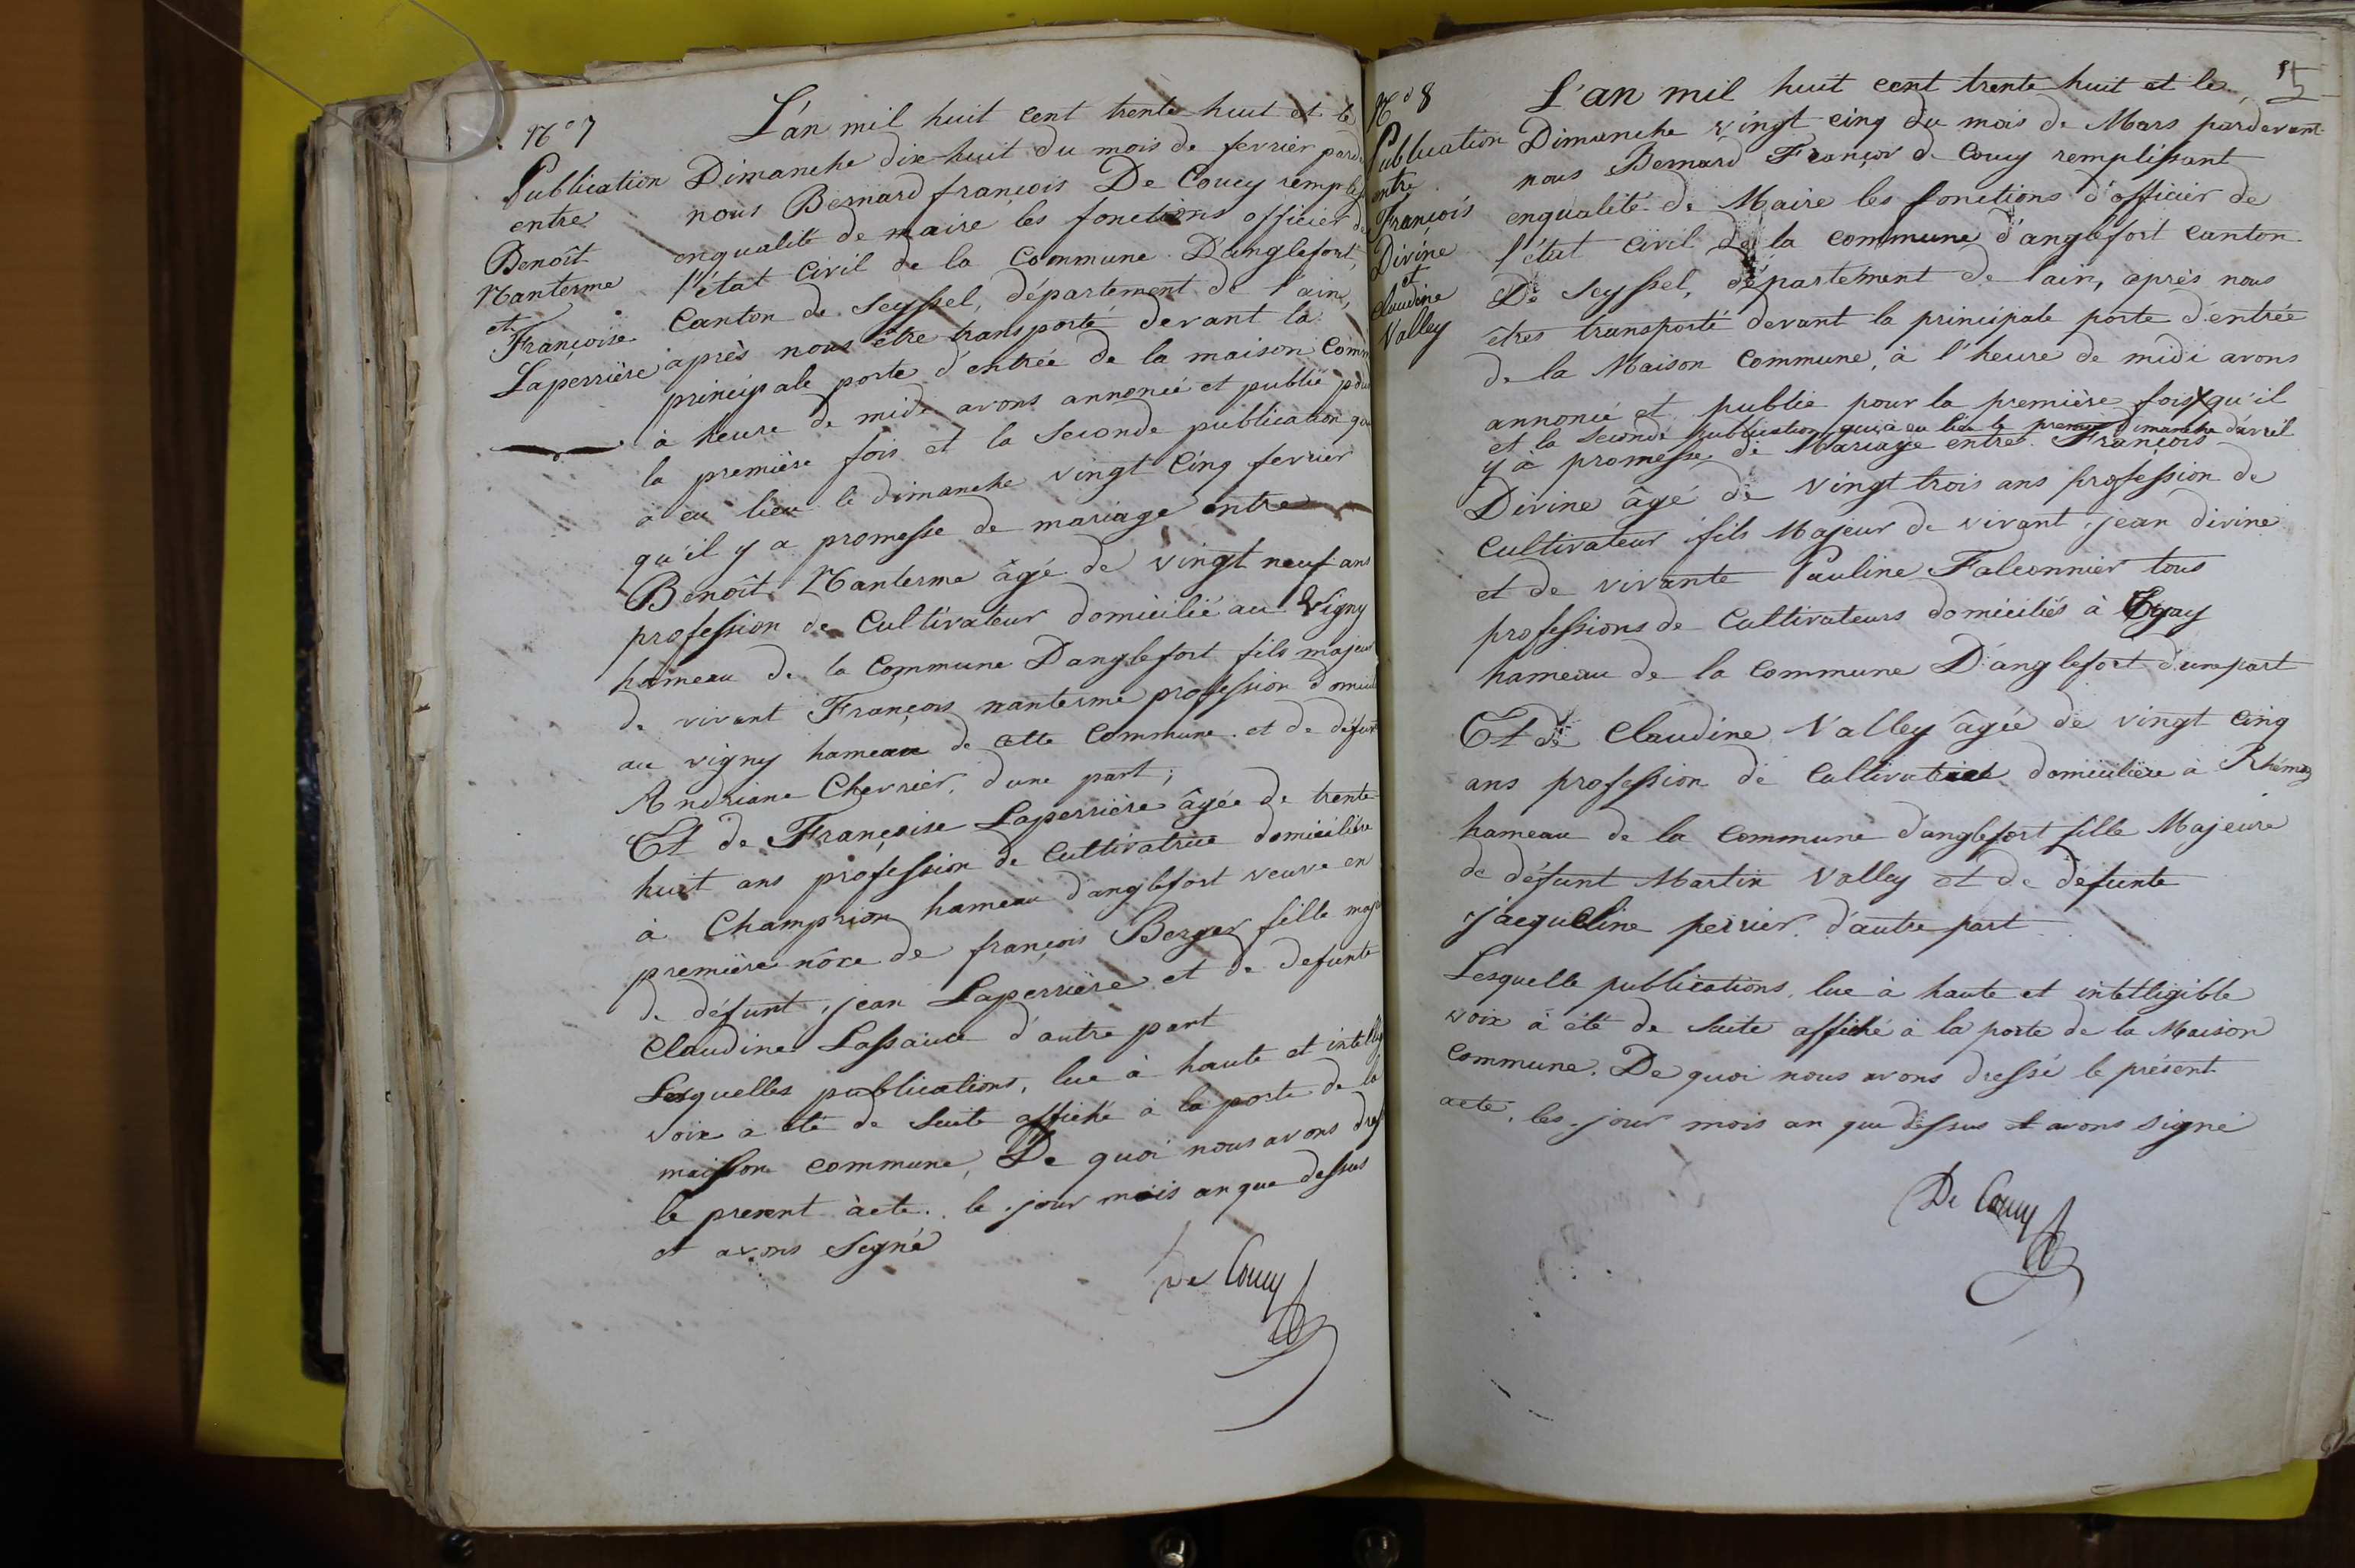 N° 7
Publication
entre
Benoît
Nanterme
et
Françoise
Laperrière
L'an mil huit cent trente huit et le
Dimanche dix-huit du mois de fevrier parde
nous Bernard françois De Coucy rempliss
enqualité de maire les fonctions officier de
l'état Civil de la Commune D'anglefort,
Canton de Seyssel, département de l'ain,
après nous être transporté devant la
principale porte d'entrée de la maison Comm
à heure de midi avons annoncé et publié pour
la première fois et la Seconde publication qui
a eu lieu le dimanche vingt Cinq fevrier
qu'il y a promesse de mariage entre
Benoît Nanterme âgé de vingt neuf ans
profession de Cultivateur domicilié au Vigny
hameau de la Commune D'anglefort fils majeur
de vivant François nanterme profession domicil
au vigny hameau de cette Commune et de défunt
Andriane Chevrier, d'une part;
Et de Françoise Laperrière âgée de trente
huit ans profession de Cultivatrice domicilière
à Champrion hameau d'anglefort veuve en
première nôce de françois Berger fille maj
de défunt jean Laperrière et de defunte
Claudine Lassauce d'autre part
Lesquelles publications, lue à haute et intellig
voix a été de Suite affiché à la porte de la
maisson commune, De quoi nous avons dres
le present àcte. le jour mois an que dessus
et avons Segné
De Coucy
N° 8
Publication
entre
François
Divine
et
Claudine
Valley
15
L'an mil huit cent trente huit et le
Dimanche vingt cinq du mois de Mars pardevant
nous Bernard François de Coucy remplissant
enqualité de Maire les fonctions d'officier de
l'état civil de la commune d'anglefort canton
De Seyssel, département de l'ain, après nous
êtres transporté devant la principale porte d'entrée
de la Maison Commune, à l'heure de midi avons
annoncé et publié pour la première fois x qu'il
et la seconde publication qui à eu lieu le premier dimanche d'avril
y à promesse de Mariage entre François
Divine âgé de vingt trois ans profession de
Cultivateur fils Majeur de vivant jean divine
et de vivante Pauline Falconnier tous
professions de Cultivateurs domiciliés à
hameau de la Commune D'anglefort d'une part
Et de Claudine Valley âgée de vingt Cinq
ans profession de Cultivatrice domicilière à
hameau de la Commune d'anglefort fille Majeure
de défunt Martin Valley et de defunte
jacqueline perrier d'autre part
Lesquelle publications, lue à haute et intelligible
voix à été de Suite affiché à la porte de la Maison
Commune, De quoi nous avons dressé le présent
acte, les jour mois an que dessus et avons signé
De Coucy